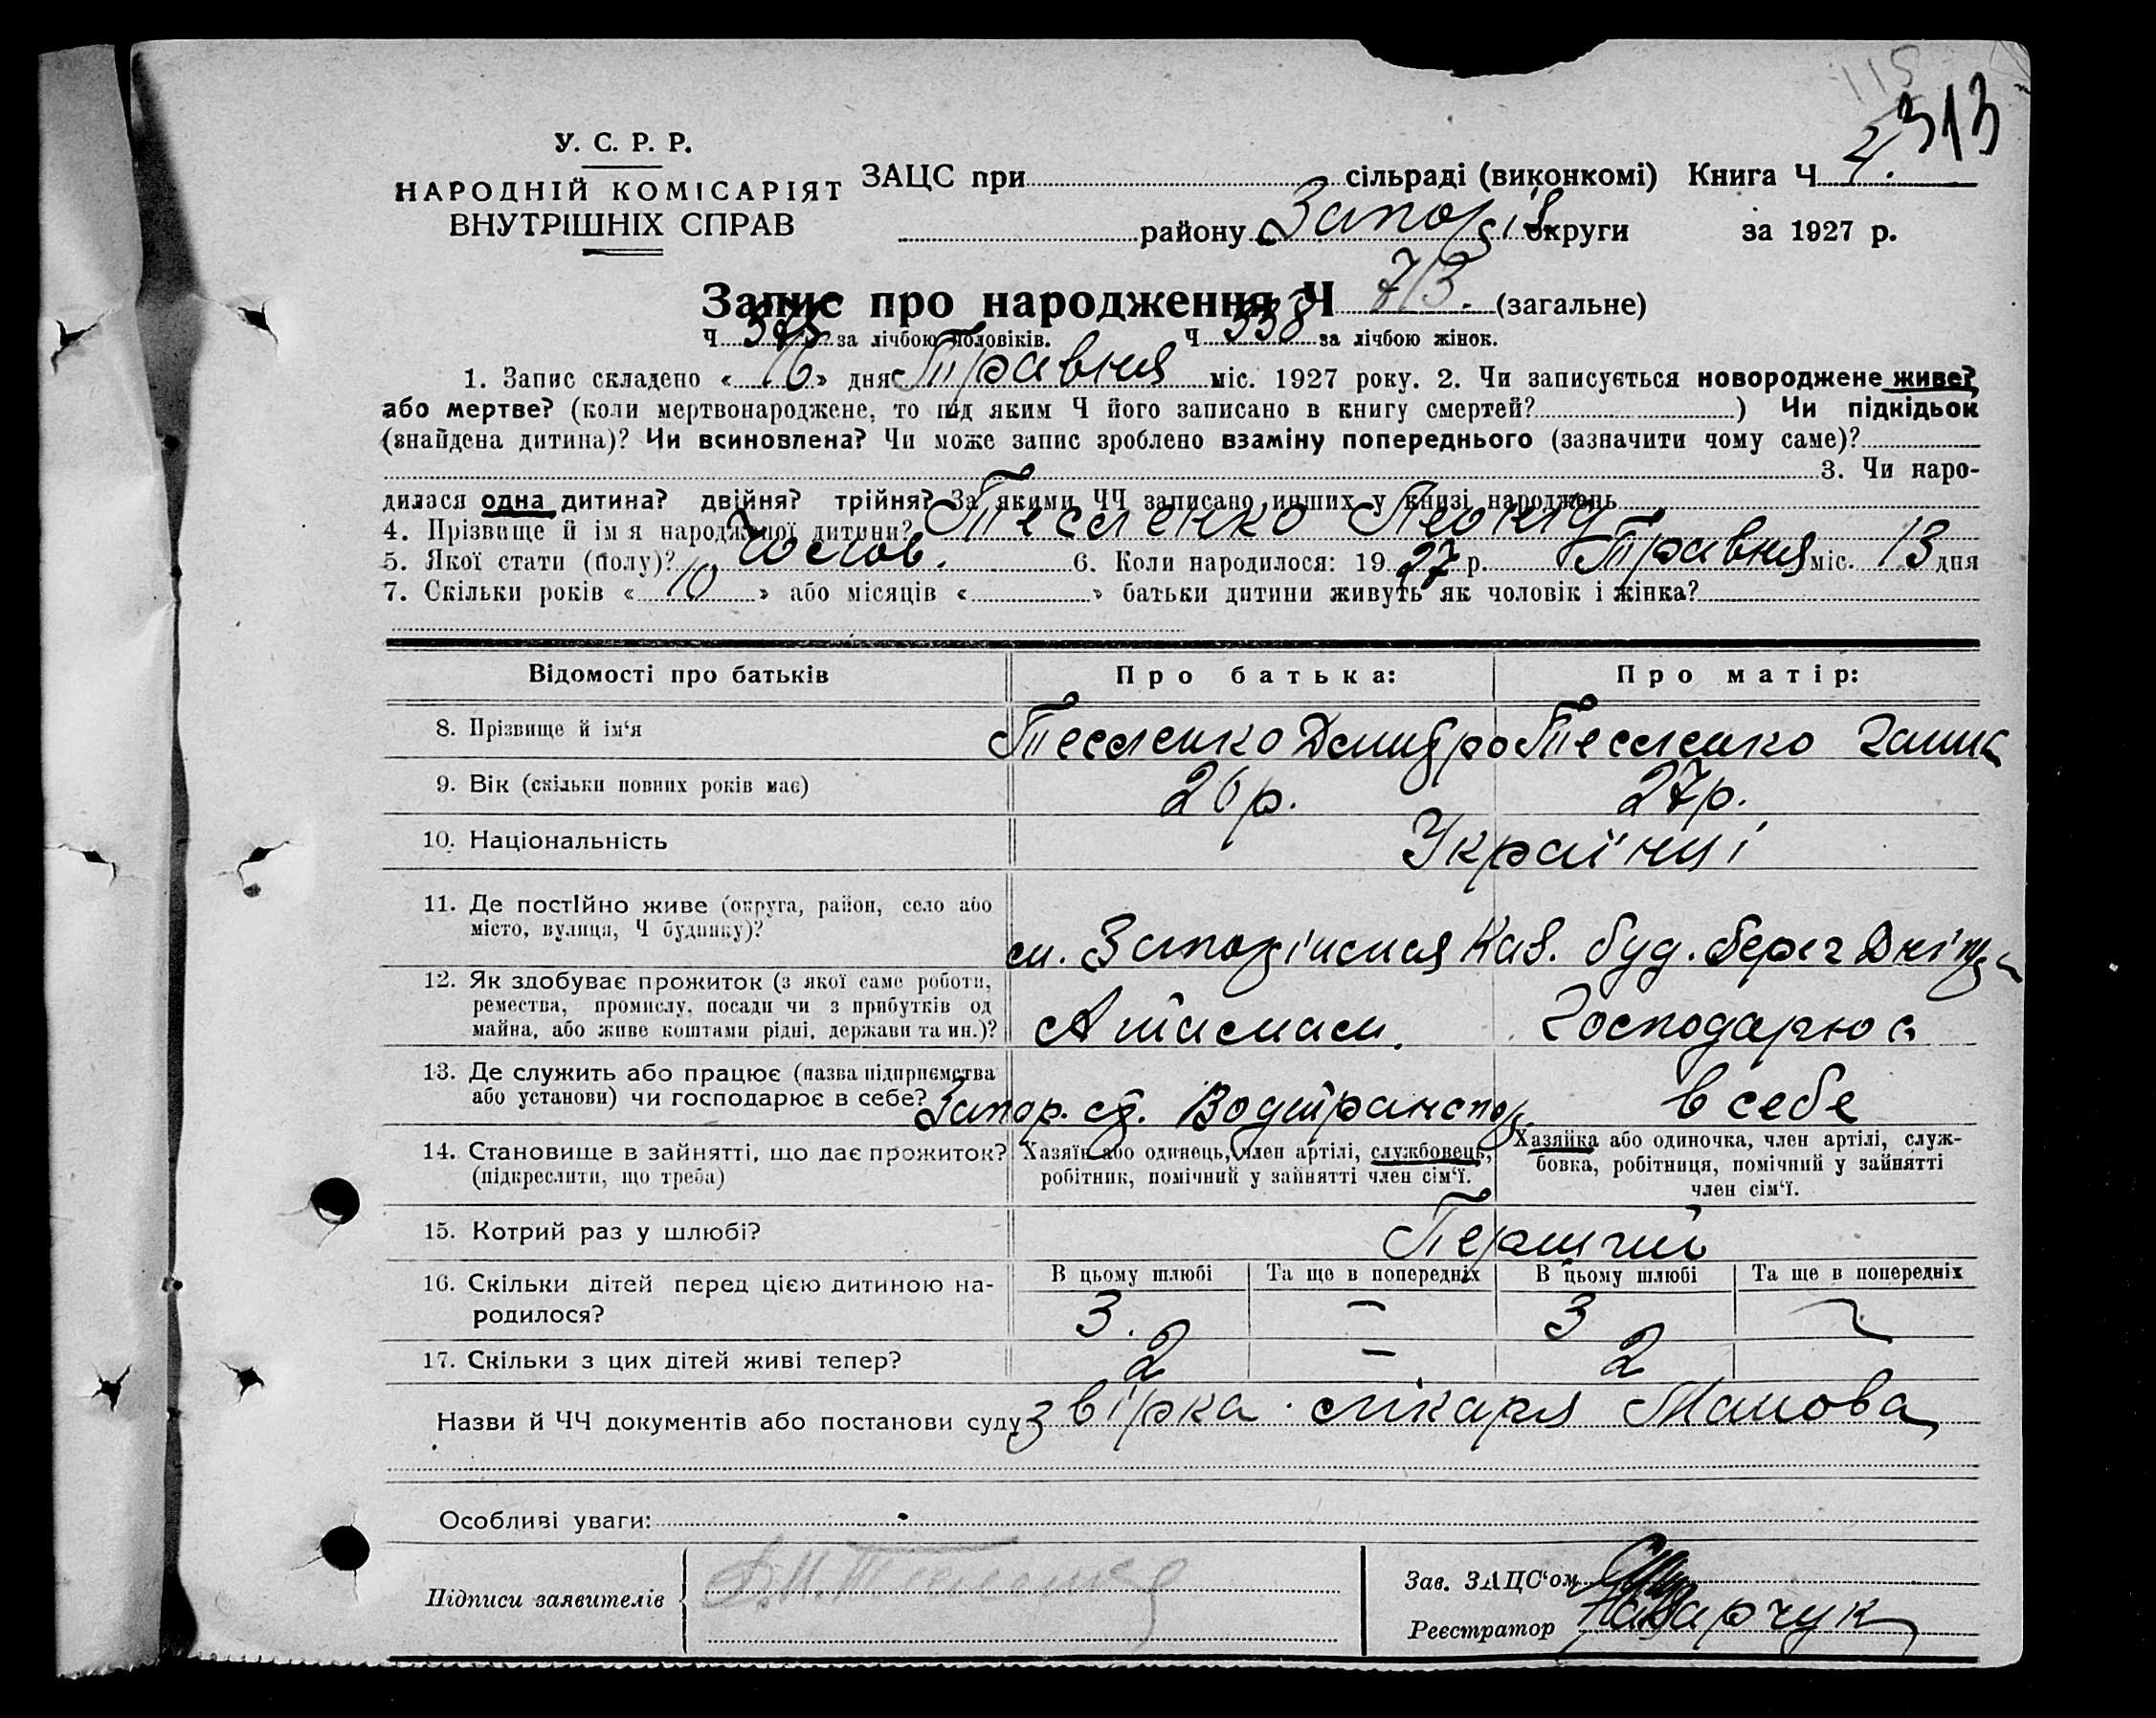 115
313
У. С. Р. Р.
НАРОДНІЙ КОМІСАРІЯТ
ВНУТРІШНІХ СПРАВ
ЗАЦС при сільраді (виконкомі) Книга Ч 4.
району округи за 1927 р.
Запис про народження Ч 713. (загальне)
Ч 375 за лічбою чоловіків. Ч 338 за лічбою жінок.
1. Запис складено « 16 » дня Травня міс. 1927 року. 2. Чи записується новороджене живе?
або мертве? (коли мертвонароджене, то під яким Ч його записано в книгу смертей? ) Чи підкідьок
(знайдена дитина)? Чи всиновлена? Чи може запис зроблено взаміну попереднього (зазначити чому саме)?
3. Чи наро-
дилася одна дитина? двійня? трійня? За якими ЧЧ записано инших у книзі народжень
4. Прізвище й ім я народженої дитини? Тесленко Леонид
5. Якої стати (полу)? Чолов. 6. Коли народилося: 1927 р. Травня міс. 13 дня
7. Скільки років « 10 » або місяців « » батьки дитини живуть як чоловік і жінка?
Відомості про батьків Про батька: Про матір:
8. Прізвище й ім‘я Тесленко Дмитро Тесленко Ганна
9. Вік (скільки повних років має) 26 р. 27 р.
10. Національність Українці
11. Де постійно живе (округа, район, село або
місто, вулиця, Ч будинку)?
м. Каз. буд. берег Дніпра
12. Як здобуває прожиток (з якої саме роботи,
ремества, промислу, посади чи з прибутків од
майна, або живе коштами рідні, держави та ин.)?
Атаман. Господарює
13. Де служить або працює (назва підприємства
або установи) чи господарює в себе?
Запор. Водтранспор. в себе
14. Становище в зайнятті, що дає прожиток?
(підкреслити, що треба)
Хазяїн або одинець, член артілі, службовець,
робітник, помічний у зайнятті член сім‘ї.
Хазяйка або одиночка, член артілі, служ-
бовка, робітниця, помічний у зайнятті
член сім‘ї.
15. Котрий раз у шлюбі? Перший
16. Скільки дітей перед цією дитиною на-
родилося?
В цьому шлюбі Та ще в попередніх В цьому шлюбі Та ще в попередніх
3. – 3
17. Скільки з цих дітей живі тепер? 2 – 2
Назви й ЧЧ документів або постанови суду Звірка лікаря
Особливі уваги:
Підписи заявителів
Зав. ЗАЦС‘ом
Реєстратор Назарчук